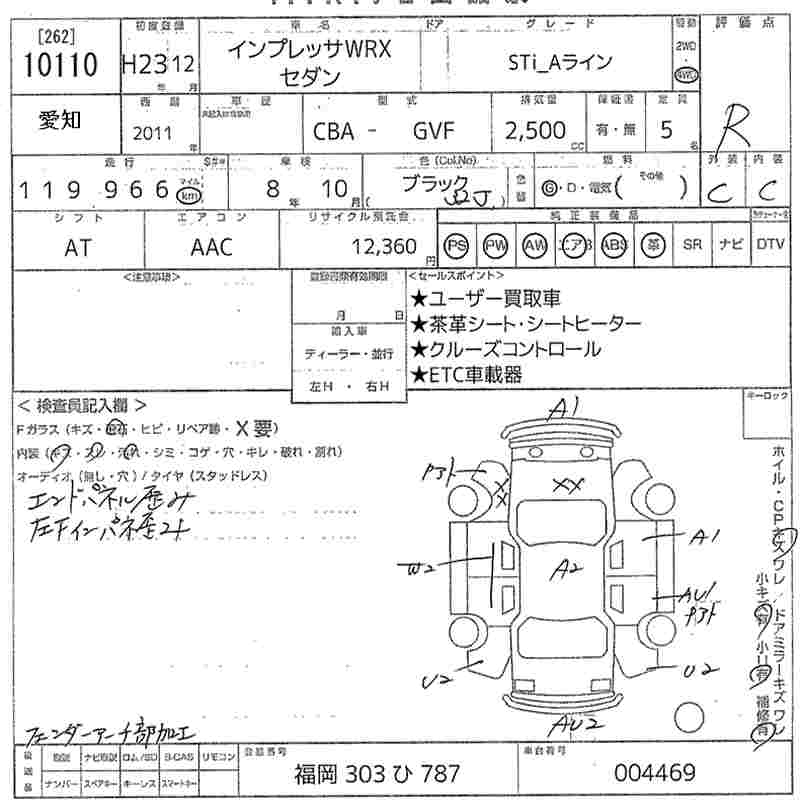 [262]
10110
初度登録
H23 12
年 月
車名
インプレッサWRX
セダン
ドア
グレード
STi_Aライン
駆動
2WD
4WD
評価点
R
愛知
西暦
2011
年
車歴
型式
CBA - GVF
排気量
2,500
CC
保証書
有・無
定員
5
名
走行
119,966
マイル
km
車検
8年 10月
色(Col.No)
ブラック
(D2J.)
色替
燃料
G・D・電気( その他 )
外装
C
内装
C
シフト
AT
エアコン
AAC
リサイクル預託金
12,360
円
純正装備品
PS PW AW エアB ABS 革 SR ナビ DTV
<注意事項>
登録書類有効期限
月 日
輸入車
ディーラー・並行
左H ・ 右H
<セールスポイント>
★ユーザー買取車
★茶革シート・シートヒーター
★クルーズコントロール
★ETC車載器
キーロック
<検査員記入欄>
Fガラス(キズ・飛石・ヒビ・リペア跡・X要)
内装(キズ・スレ・汚れ・シミ・コゲ・穴・キレ・破れ・割れ)
オーディオ(無し・穴)/タイヤ(スタッドレス)
エンドパネル歪み
左Fインパネ歪み
A1
P3ト
XX
XX
A1
W2
A2
AU1
P3ト
U2
U2
AU2
ホイル・CPキズ ワレ ドアミラーキズ ワレ
小キズ有 小凹有 補修有
フェンダーアーチ部加工
後送品
取説 ナビ取説 ロム/SD B-CAS リモコン
ナンバー スペアキー キーレス スマートキー
登録番号
福岡 303 ひ 787
車台番号
004469